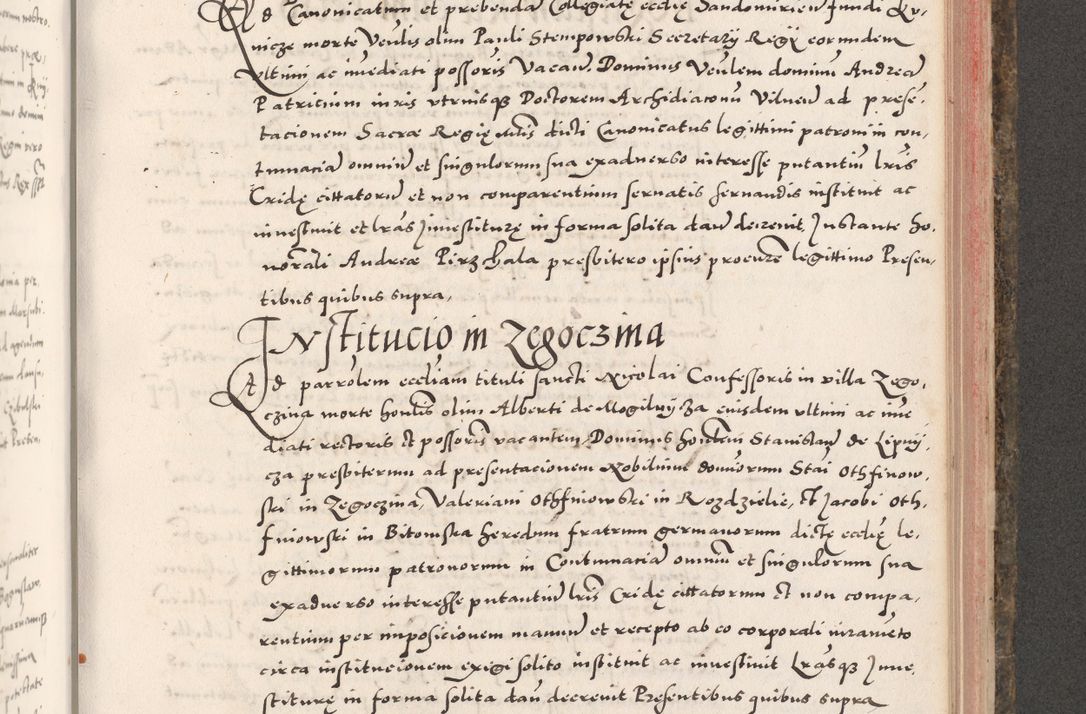 Ad Canonicatum et prebendā Collegiatę ecclię Sandomirień fundi Kv,
nicze morte Veńlis olim Pauli Stempowski Secretarij Regij eorumdem
vltimi ac imediati possoris Vacań. Dominus Veńlem dominū Andreā
Patricium iuris vtriusqȝ Doctorem Archidiaconū Vilneń ad prese,
tacionem Sacræ Regię Mtis dicti Canonicatus legittimi patroni in con,
tumaciā omniū et singulorum sua exaduerso interesse putantiū lrīs
Cridę cittatorū et non comparentium seruatis seruandis instituit ac
inuestiuit et lrās Inuestiturę in forma solita dań decreuit. Instante ho,
norāli Andreæ Pirzchala presbitero ipsius procuræ legittimo Presen,
tibus quibus supra,
Institucio in Zegoczina
Ad parrolem eccliam tituli sancti Nicolai Confessoris in villa Zego,
czina morte honlis olim Alberti de Mogilnijcza eiusdem vltimi ac ime
diati rectoris et possoris vacantem, Dominus honlem Stanislaū de Lipnij,
cza presbiterum ad presentacionem Nobilium domiorum Stai Othfinow,
ski in Zegoczina, Valeriani Othfiniowski in Rozdzielie, et Jacobi Oth,
finiowski in Bitomska heredum fratrum germanorum dictę ecclię le,
gittimorum patronorum in Contumaciā omniū et singulorum sua
exaduerso interesse putantiū lrīs Cridę cittatorum et non compa,
rentium per imposicionem manuū et recepto ab eo corporali iuramēto
circa institucionem exigi solito instituit ac inuestiuit Lrasqȝ Inue,
stiturę in forma solita dań decreuit Presentibus quibus supra